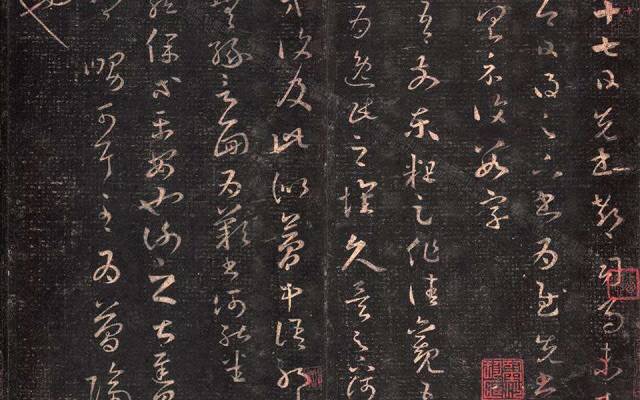 十七日先書郗司馬未
日得足下書為慰先書
具示復數字
吾前東粗足作佳觀吾
為逸民之懷久矣足下何
復及此似夢中語耶
緣言面為歎書何能悉
保等平安也謝之甚遲見
舅可耳至為簡隔
也